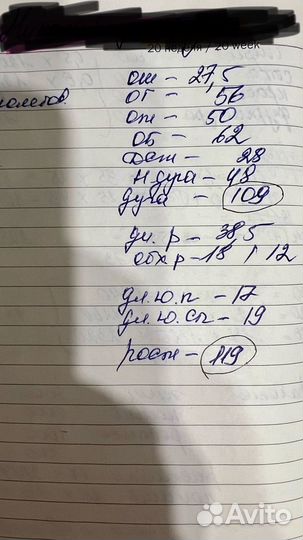 20 неделя / 20 week
ош - 27,5
ог - 56
от - 50
об - 62
дст - 28
н.дуга - 48
дуга - 109
дл. р - 38,5
обх р - 18 / 12
дл.ю.п - 17
дл.ю.сп - 19
рост - 119
Avito